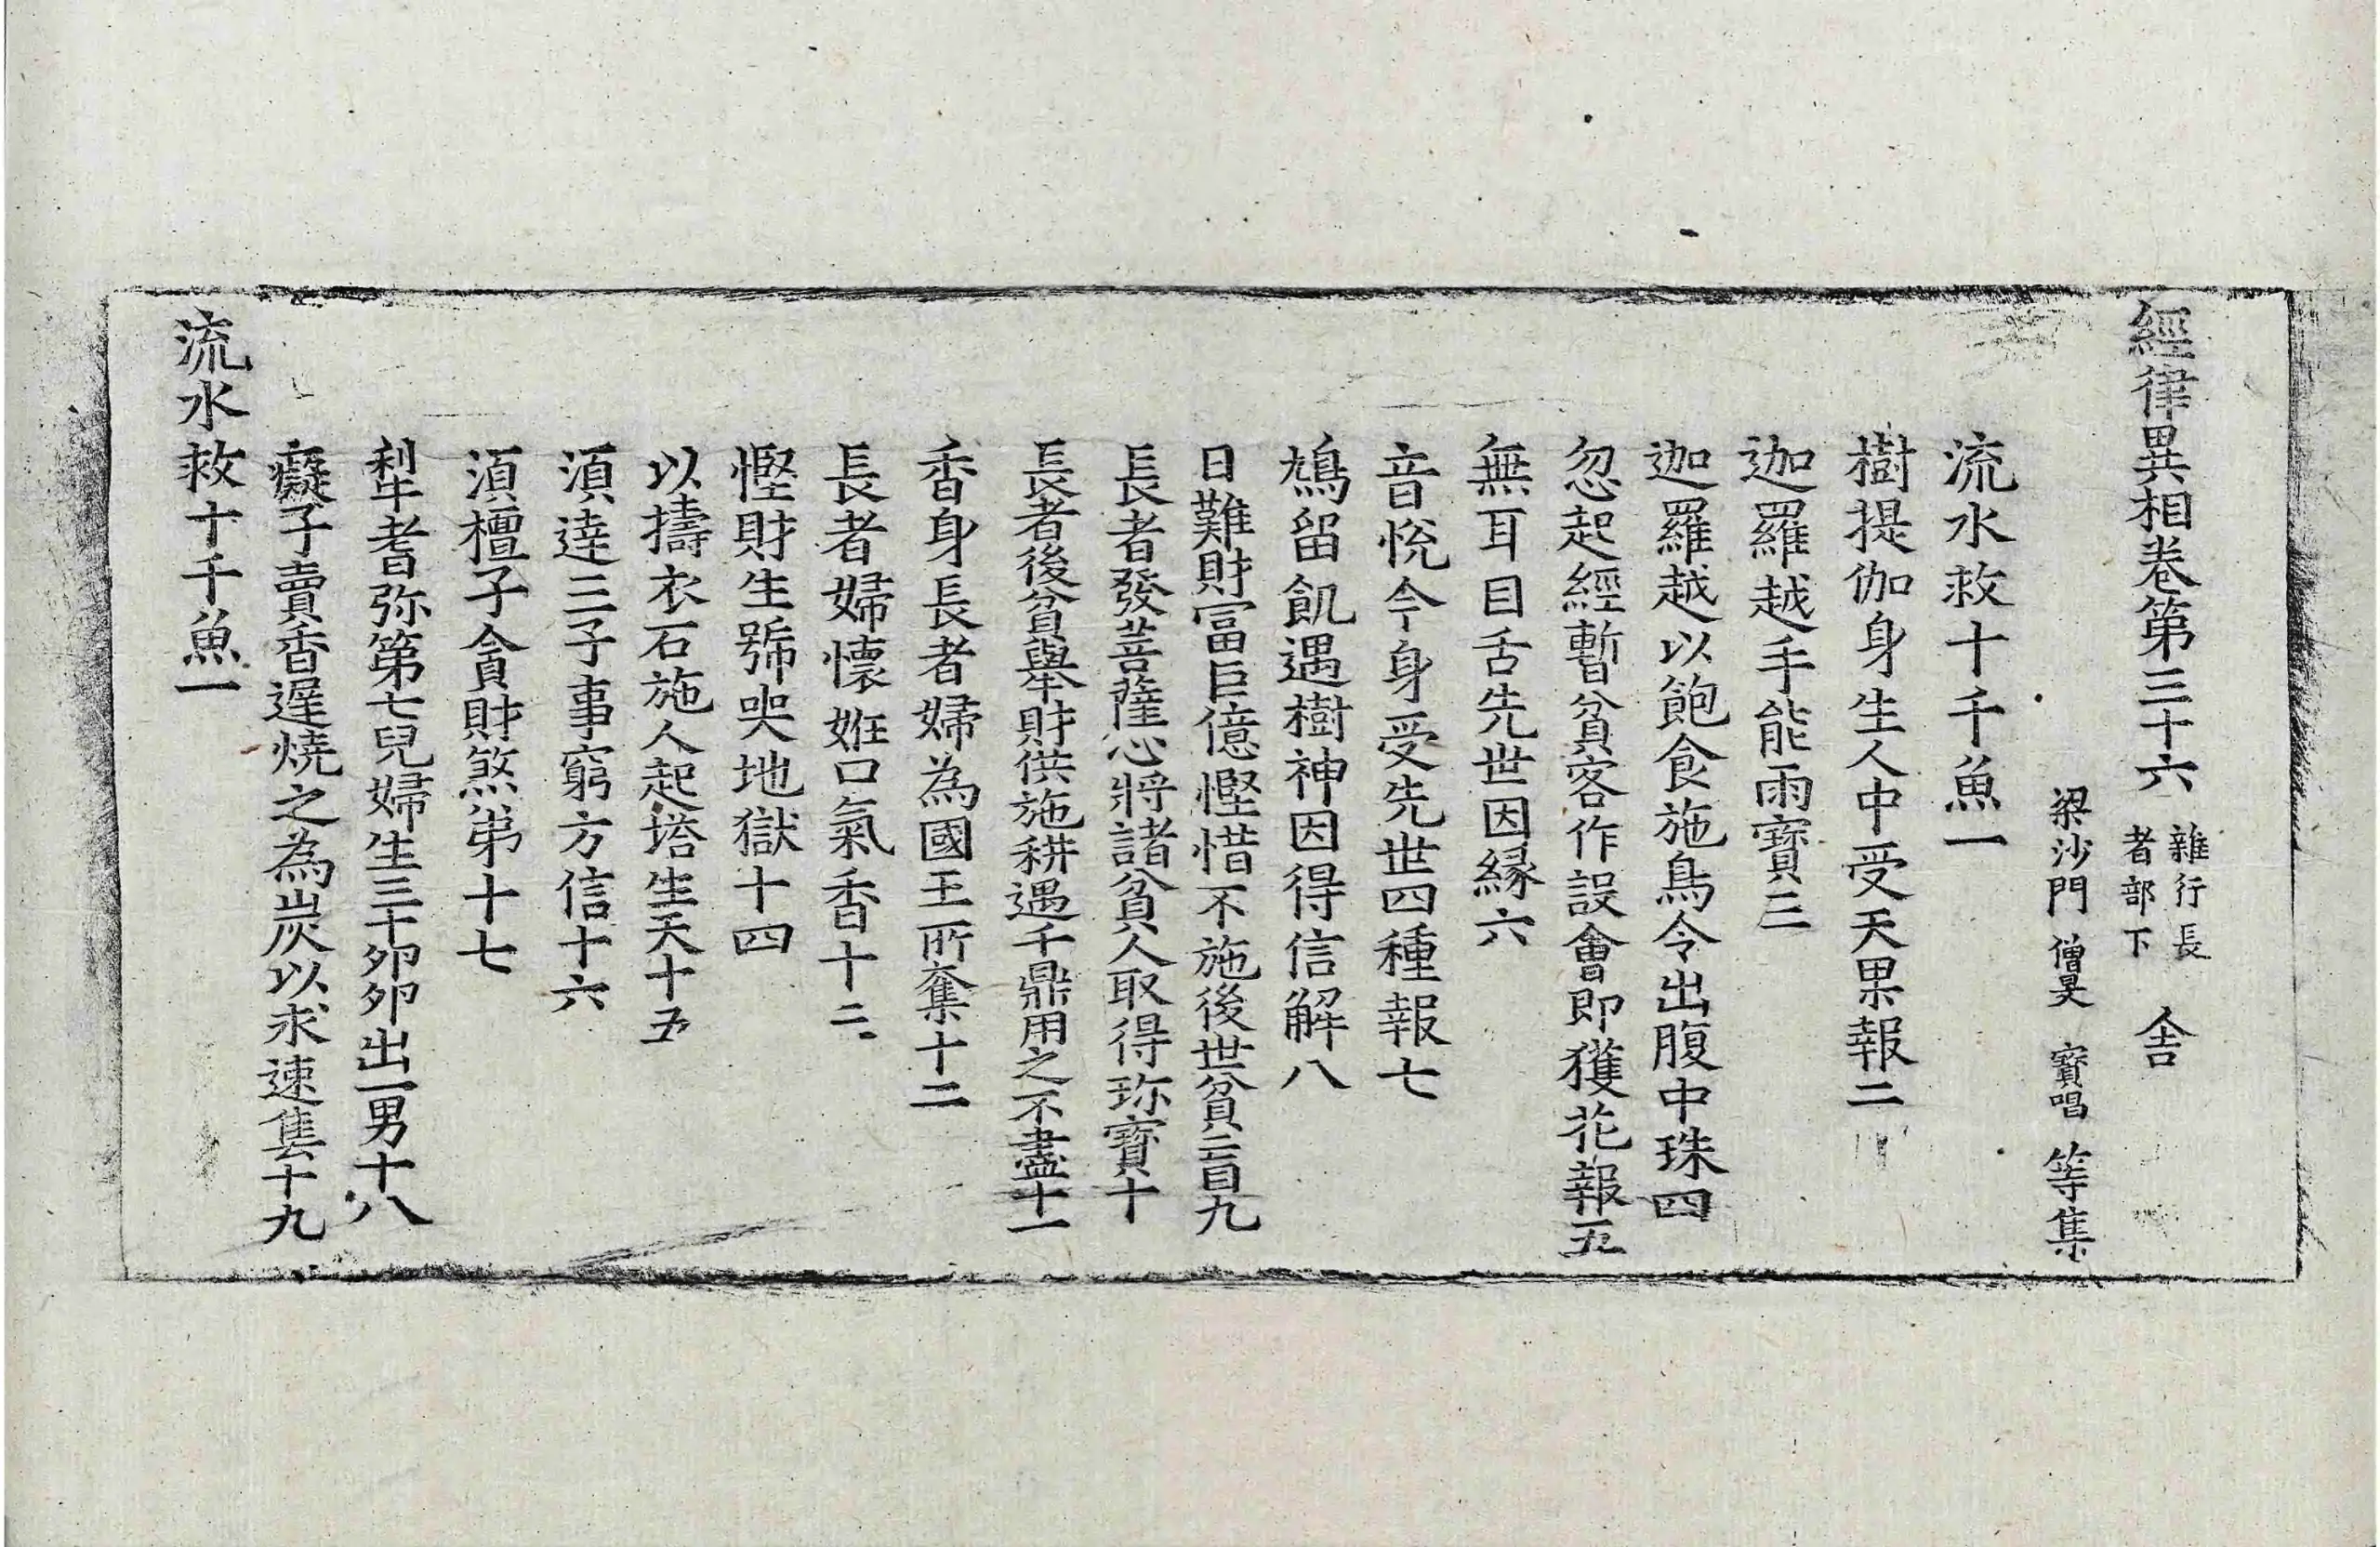 經律異相卷第三十六 雜行長者部下 舎
梁沙門 僧旻 寶唱 等集
流水救十千魚一
樹提伽身生人中受天果報二
迦羅越手能雨寶三
迦羅越以飽食施鳥令出腹中珠四
忽起經暫貧客作設會即獲花報五
無耳目舌先世因緣六
音悅今身受先世四種報七
鴆留飢遇樹神因得信解八
日難財冨巨億慳惜不施後世貧盲九
長者發菩薩心將諸貧人取得珎寶十
長者後貧舉財供施耕遇千鼎用之不盡十一
香身長者婦為國王所奪十二
長者婦懷姙口氣香十三
慳財生號哭地獄十四
以擣衣石施人起塔生天十五
湏達三子事窮方信十六
湏檀子貪財煞弟十七
犁耆弥第七兒婦生三十卵卵出一男十八
癡子賣香遲燒之為炭以求速售十九
流水救十千魚一